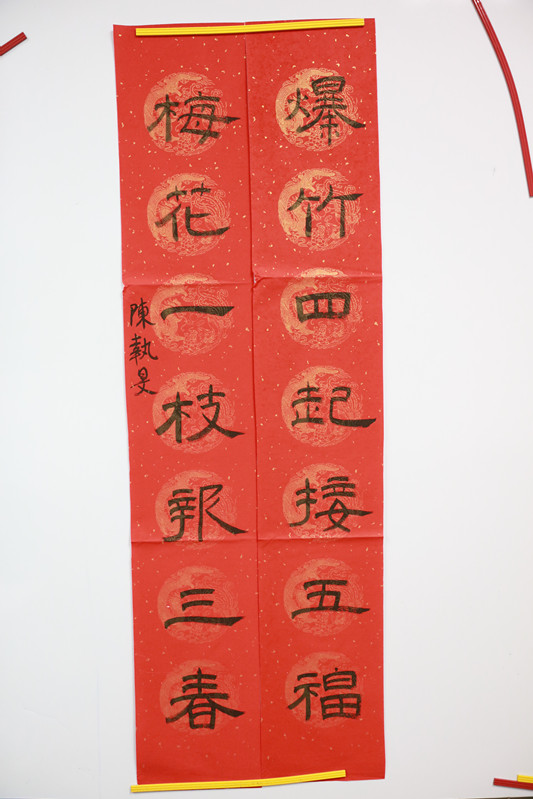 爆竹四起接五福
梅花一枝報三春
陳執旻